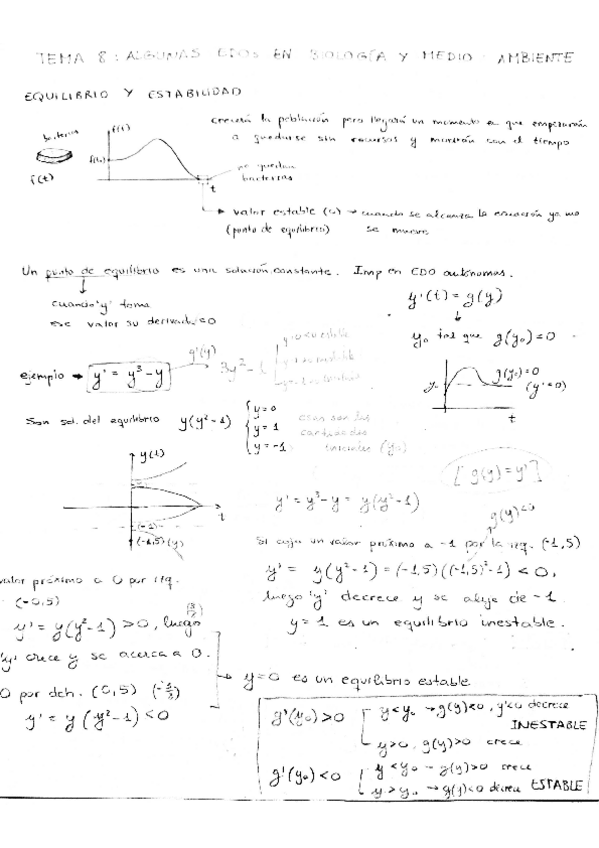 TEMA 8: ALGUNAS EDOS EN BIOLOGÍA Y MEDIO AMBIENTE
EQUILIBRIO Y ESTABILIDAD
crecerá la población pero llegará un momento en que empezarán
a quedarse sin recursos y morirán con el tiempo
bacterias
f(t)
f(t)
t
no quedan
bacterias
→ valor estable (0) → cuando se alcanza la ecuación ya no
(punto de equilibrio) se mueve
Un punto de equilibrio es una solución constante. Imp en EDO autónomas.
↓
cuando 'y' toma
ese valor su derivada = 0
y'(t) = g(y)
↓
y₀ tal que g(y₀) = 0
ejemplo → y' = y³ - y
g'(y)
3y² - 1
g(y₀) = 0
(y' = 0)
t
Son sol. del equilibrio y(y² - 1)
y = 0
y = 1
y = -1
esas son las
cantidades
iniciales (y₀)
[g(y) = y']
y(t)
t
(-1)
(-1,5) (y)
y' = y³ - y = y(y² - 1)
g(y) < 0
Si cojo un valor próximo a -1 por la izq. (-1,5)
y' = y(y² - 1) = (-1,5)((-1,5)² - 1) < 0,
luego 'y' decrece y se aleja de -1.
y = 1 es un equilibrio inestable.
valor próximo a 0 por izq.
(-0,5)
y' = y(y² - 1) > 0, luego
'y' crece y se acerca a 0.
0 por dch. (0,5)
y' = y(y² - 1) < 0
→ y = 0 es un equilibrio estable
g'(y₀) > 0 y < y₀ → g(y) < 0, y' < 0 decrece
INESTABLE
y > 0, g(y) > 0 crece
g'(y₀) < 0 y < y₀ → g(y) > 0 crece
y > y₀ → g(y) < 0 decrece ESTABLE